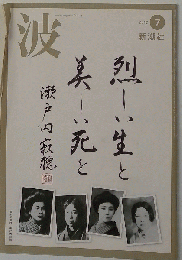 波
7
新潮社
烈しい生と
美しい死を
瀬戸内寂聴